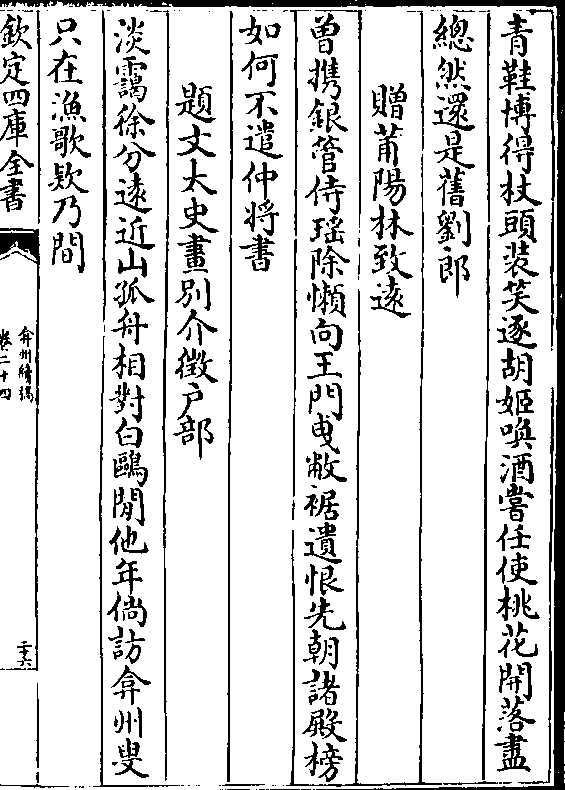 青鞋博得杖頭装笑逐胡姬喚酒嘗任使桃花開落盡
總然還是舊劉郎
贈莆陽林致遠
曾携銀管侍瑶除懶向王門曳敝裾遺恨先朝諸殿榜
如何不遣仲将書
題文太史畫别介徵户部
淡靄徐分遠近山孤舟相對白鷗閒他年倘訪弇州叟
只在漁歌欵乃間
欽定四庫全書
弇州續稿
卷二十四
二十六